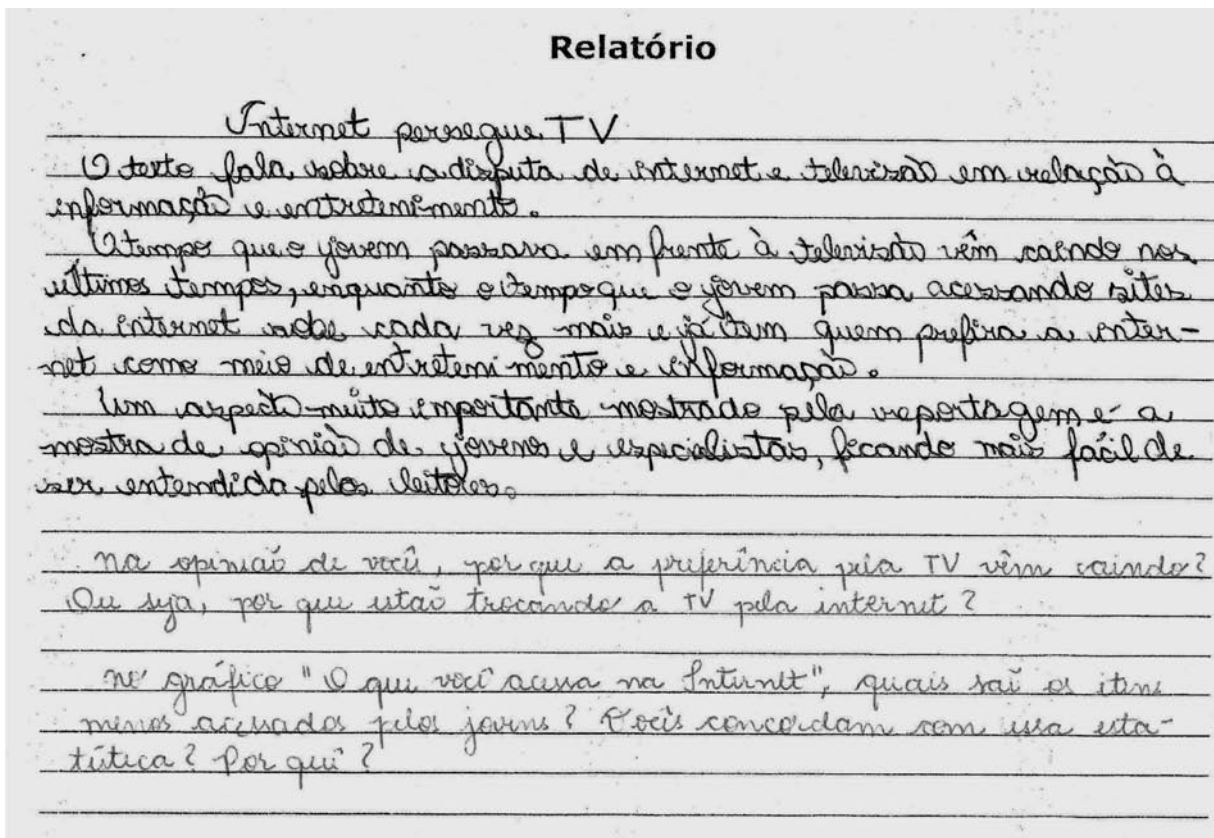 Relatório
Internet persegue TV
O texto fala sobre a disputa de internet e televisão em relação à
informação e entretenimento.
O tempo que o jovem passava em frente à televisão vêm caindo nos
últimos tempos, enquanto o tempo que o jovem passa acessando sites
da internet sobe cada vez mais e já tem quem prefira a inter-
net como meio de entretenimento e informação.
Um aspecto muito importante mostrado pela reportagem é a
mostra de opinião de jovens e especialistas, ficando mais fácil de
ser entendida pelos leitores.
na opinião de você, por que a preferência pela TV vêm caindo?
Ou seja, por que estão trocando a TV pela internet?
no gráfico "O que você acessa na Internet", quais são os itens
menos acessados pelos jovens? Vocês concordam com essa esta-
tística? Por quê?